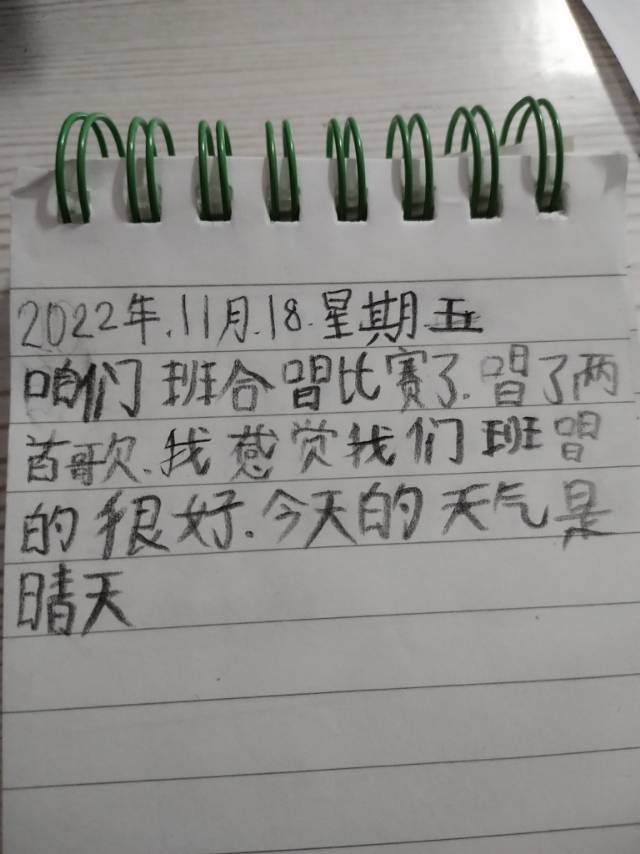 2022年.11月.18.星期五
咱们班合唱比赛了.唱了两
首歌.我感觉我们班唱
的很好.今天的天气是
晴天